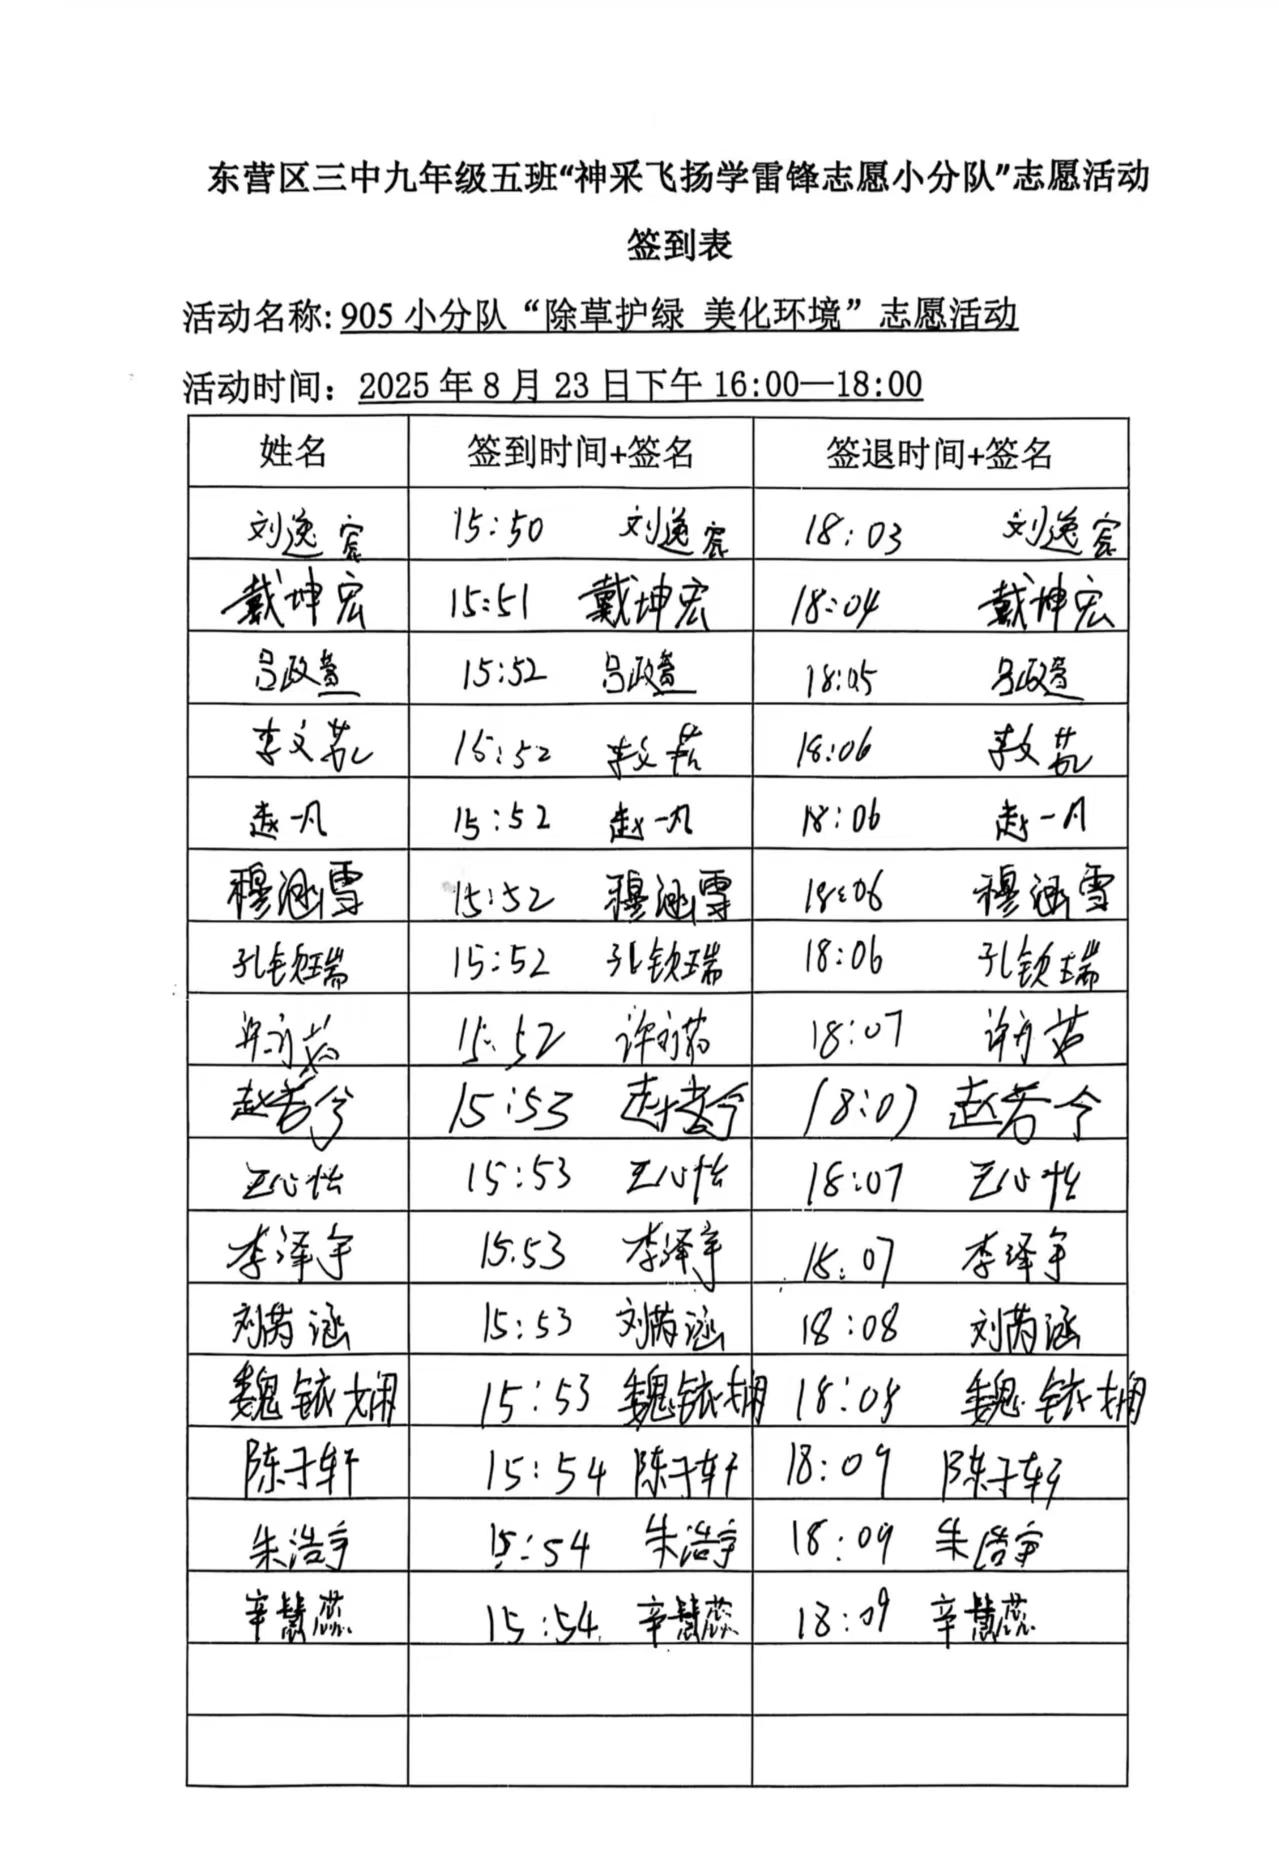 东营区三中九年级五班“神采飞扬学雷锋志愿小分队”志愿活动
签到表
活动名称: 905 小分队“除草护绿 美化环境”志愿活动
活动时间：2025 年 8 月 23 日下午 16:00—18:00
姓名 签到时间+签名 签退时间+签名
刘逸容 15:50 刘逸容 18:03 刘逸容
戴坤宏 15:51 戴坤宏 18:04 戴坤宏
吕政萱 15:52 吕政萱 18:05 吕政萱
李文 15:52 李文 18:06 李文
赵一凡 15:52 赵一凡 18:06 赵一凡
穆涵雪 15:52 穆涵雪 18:06 穆涵雪
孔钦瑞 15:52 孔钦瑞 18:06 孔钦瑞
许 15:52 许 18:07 许
赵若兮 15:53 赵若兮 18:07 赵若兮
王心怡 15:53 王心怡 18:07 王心怡
李泽宇 15:53 李泽宇 18:07 李泽宇
刘芮涵 15:53 刘芮涵 18:08 刘芮涵
魏铱娴 15:53 魏铱娴 18:08 魏铱娴
陈子轩 15:54 陈子轩 18:09 陈子轩
朱浩宇 15:54 朱浩宇 18:09 朱浩宇
辛慧蕊 15:54 辛慧蕊 18:09 辛慧蕊